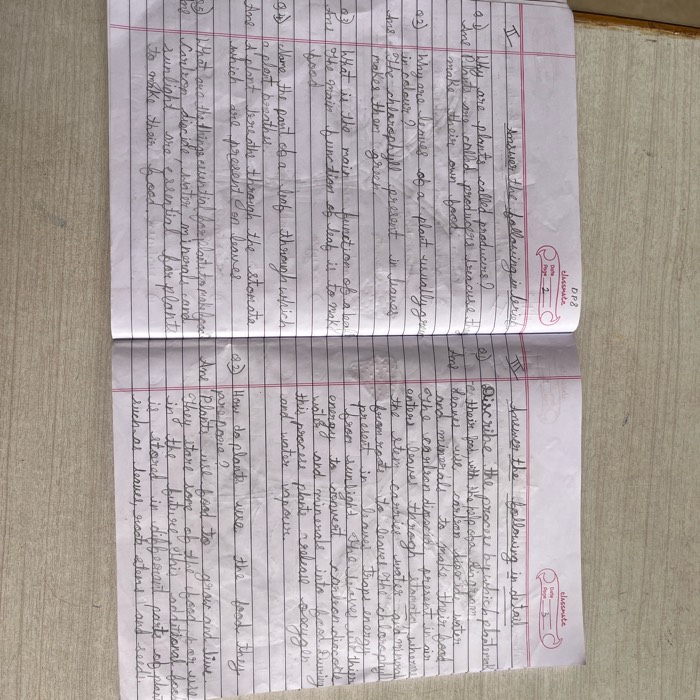 DPS
classmate
Date
Page 2
II Answer the following in brief
Q1) Why are plants called producers?
Ans Plants are called producers because they
make their own food
Q2) Why are leaves of a plant usually green
in colour?
Ans The chlorophyll present in leaves
makes them green
Q3 What is the main function of a leaf
Ans The main function of leaf is to make
food
Q4) Name the part of a leaf through which
a plant breathes
Ans A plant breathe through the stomata
which are present on leaves
Q5) What are the things essential for plants to make food
Ans Carbon dioxide, water minerals and
sunlight are essential for plants
to make their food.
classmate
Date
Page 3
III Answer the following in detail
Q) Discribe the process by which plants make
their food with the help of a diagram
Ans Leaves use carbon dioxid, water
and minerals to make their food
The carbon dioxide present in air
enters leaves through stomata whereas
the stem carries water and minerals
from roots to leaves The chlorophyll
present in leaves traps energy
from sunlight The leaves use this
energy to convert carbon dioxide
water and minerals into food During
this process plants release oxygen
and water vapour
Q2) How do plants use the food they
prepare?
Ans Plants use food to grow and live
They store some of the food for use
in the future This additional food
is stored in different parts of plant
such as leaves, root stems and seeds